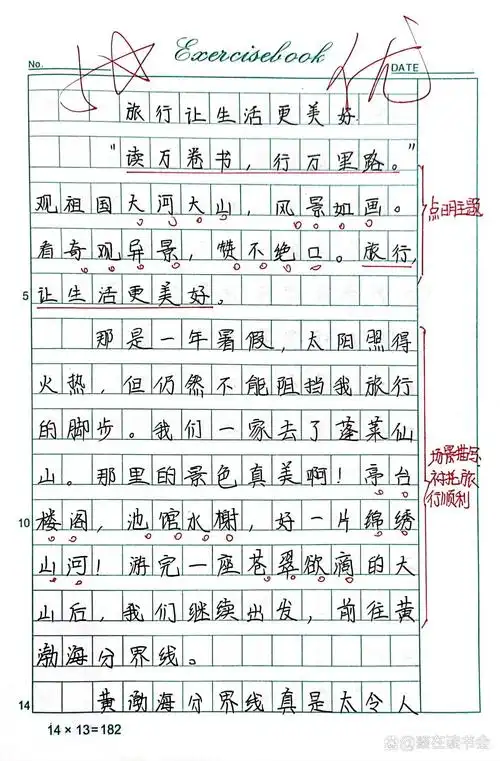 Exercisebook
No.
DATE
旅行让生活更美好
“读万卷书，行万里路。”
观祖国大河大山，风景如画。
看奇观异景，赞不绝口。旅行，
5 让生活更美好。
点明主题
那是一年暑假，太阳照得
火热，但仍然不能阻挡我旅行
的脚步。我们一家去了蓬莱仙
山。那里的景色真美啊！亭台
10 楼阁，池馆水榭，好一片绵绣
山河！游完一座苍翠欲滴的大
山后，我们继续出发，前往黄
渤海分界线。
场景描写
衬托旅
行顺利
14 黄渤海分界线真是太令人
14×13=182